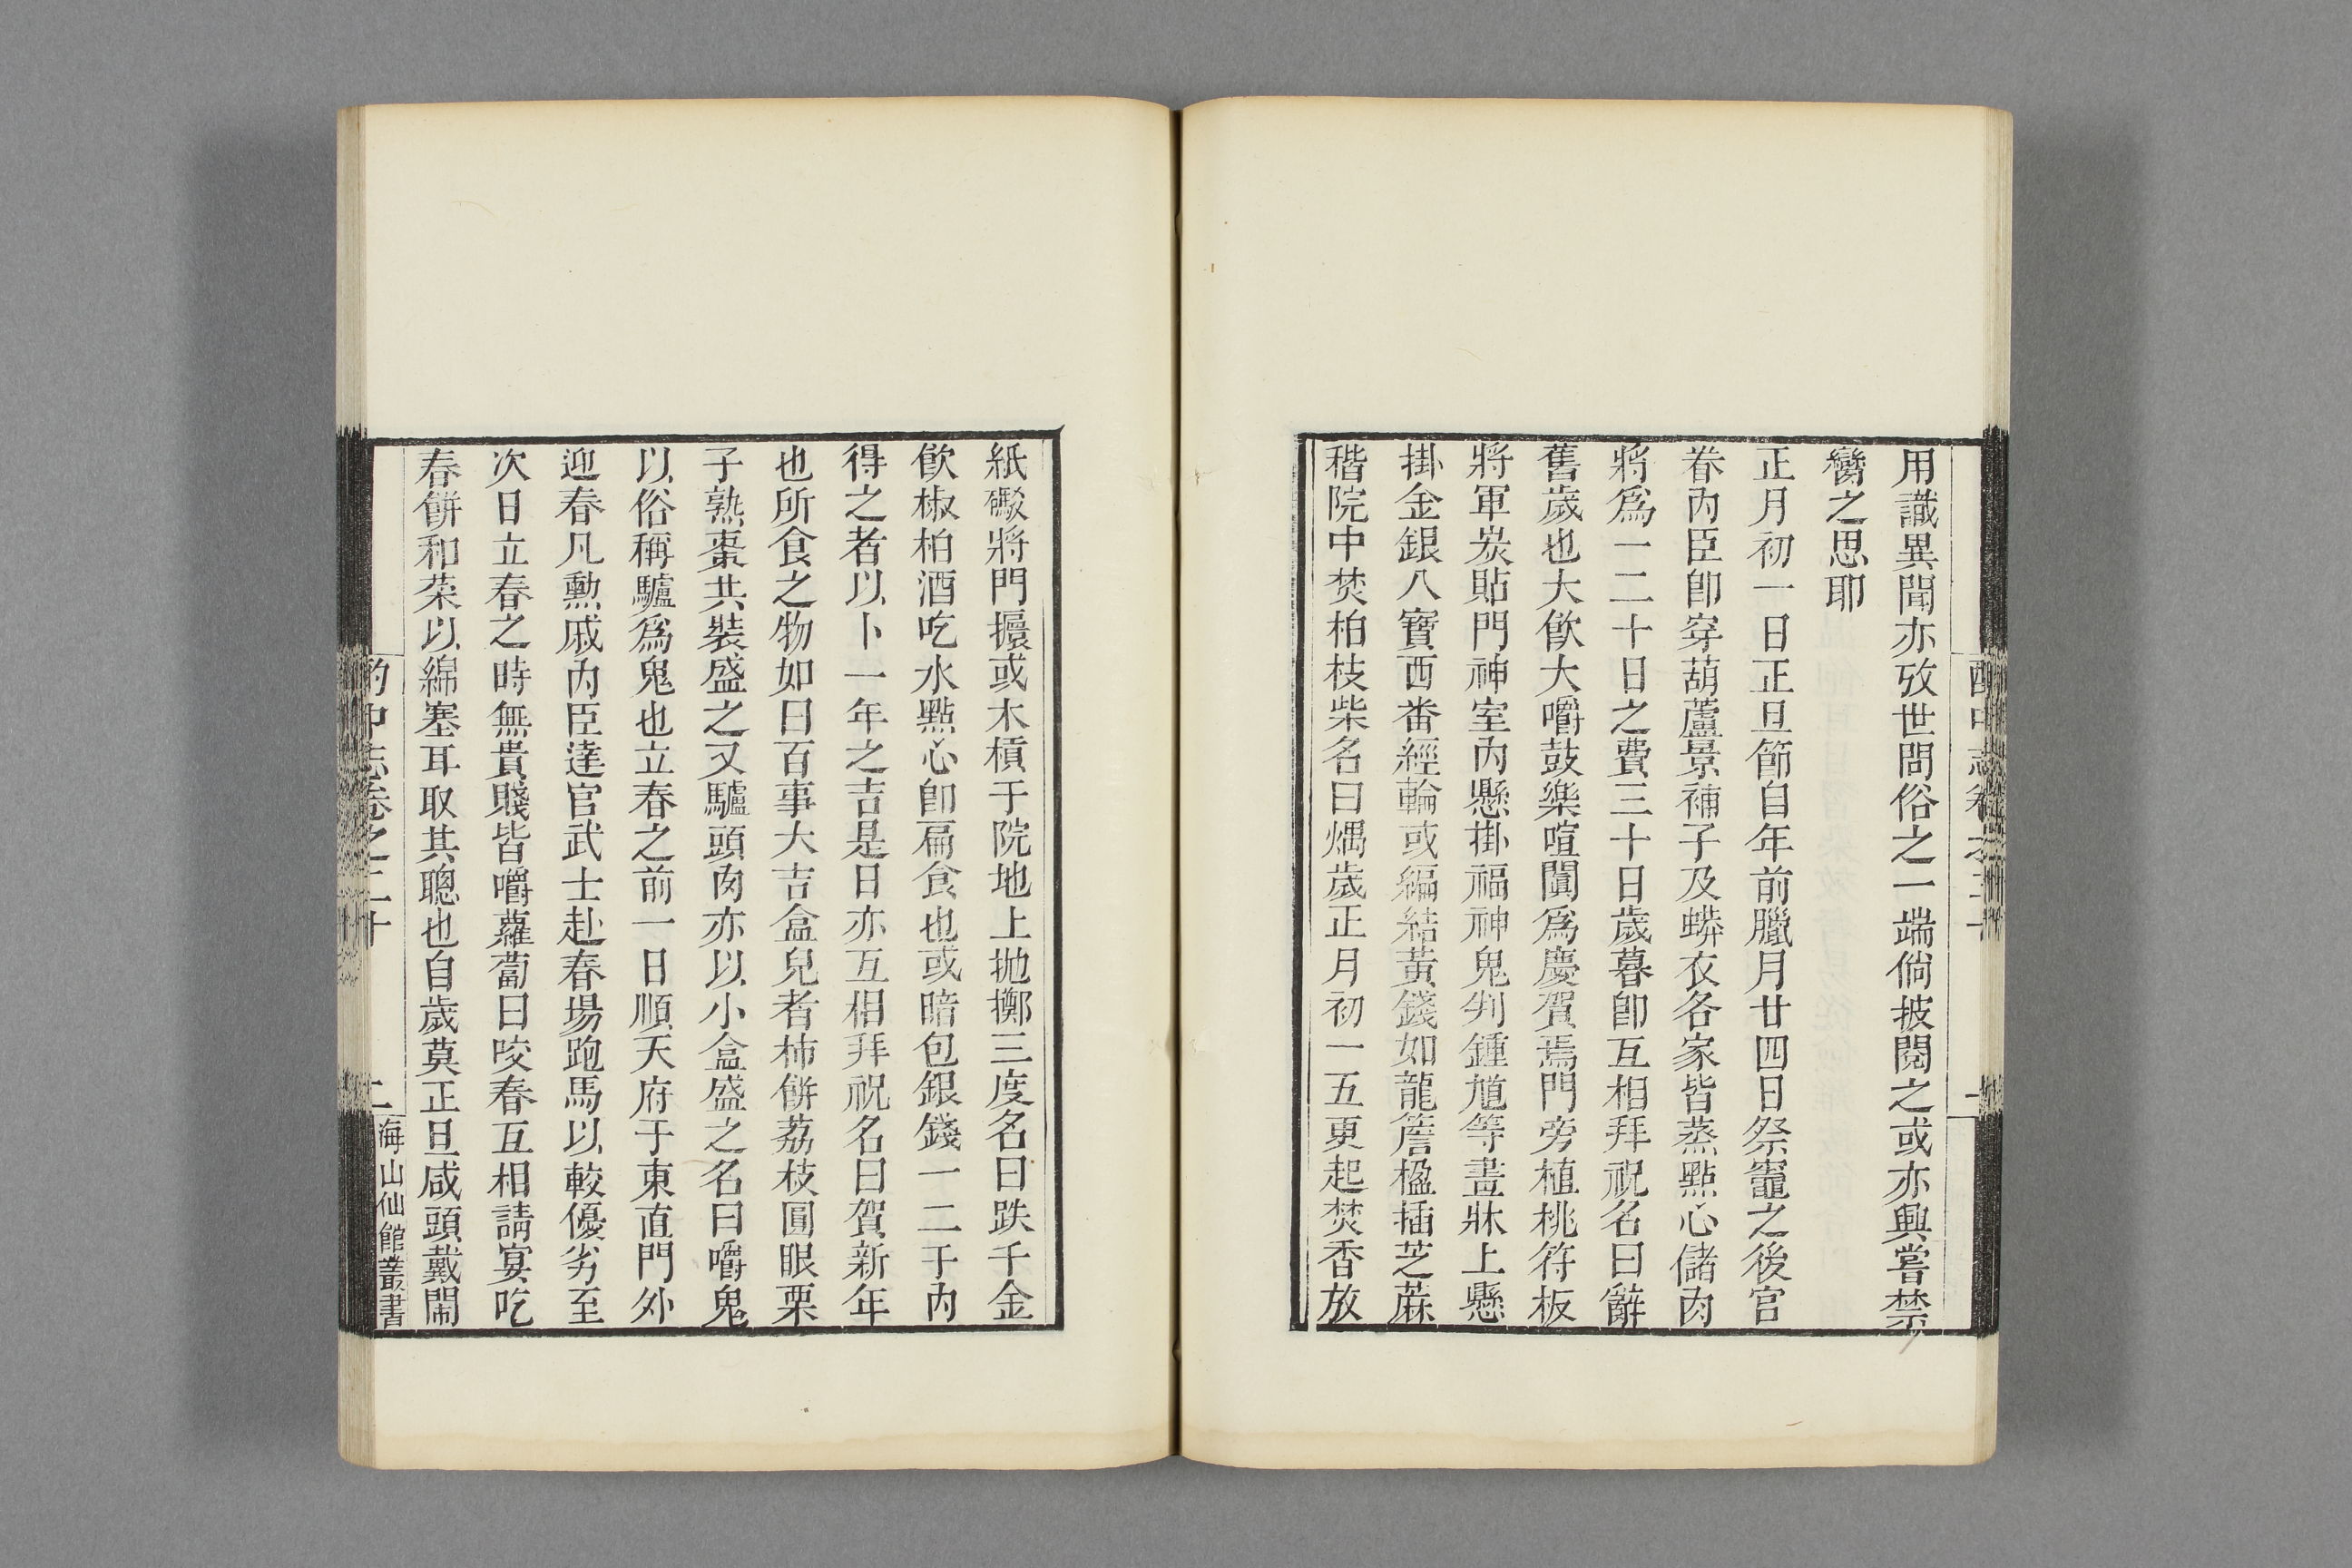 用識異聞亦攷世間俗之一端倘披閱之或亦興嘗禁
臠之思耶
正月初一日正旦節自年前臘月廿四日祭竈之後宫
眷內臣卽穿葫蘆景補子及蟒衣各家皆蒸點心儲肉
將爲一二十日之費三十日歲暮卽互相拜祝名曰辭
舊歲也大飮大嚼鼓樂喧闐爲慶賀焉門旁植桃符板
將軍炭貼門神室內懸掛福神鬼判鍾馗等畫牀上懸
掛金銀八寶西番經輪或編結黃錢如龍簷楹插芝蔴
稭院中焚柏枝柴名曰焆歲正月初一五更起焚香放
紙礮將門擡或木槓于院地上抛擲三度名曰跌千金
飮椒柏酒吃水點心卽扁食也或暗包銀錢一二于內
得之者以卜一年之吉是日亦互相拜祝名曰賀新年
也所食之物如曰百事大吉盒兒者柿餅荔枝圓眼栗
子熟棗共裝盛之又驢頭肉亦以小盒盛之名曰嚼鬼
以俗稱驢爲鬼也立春之前一日順天府于東直門外
迎春凡勳戚內臣達官武士赴春場跑馬以較優劣至
次日立春之時無貴賤皆嚼蘿蔔曰咬春互相請宴吃
春餅和菜以綿塞耳取其聰也自歲莫正旦咸頭戴閙
酌中志卷之二十
二
海山仙館叢書